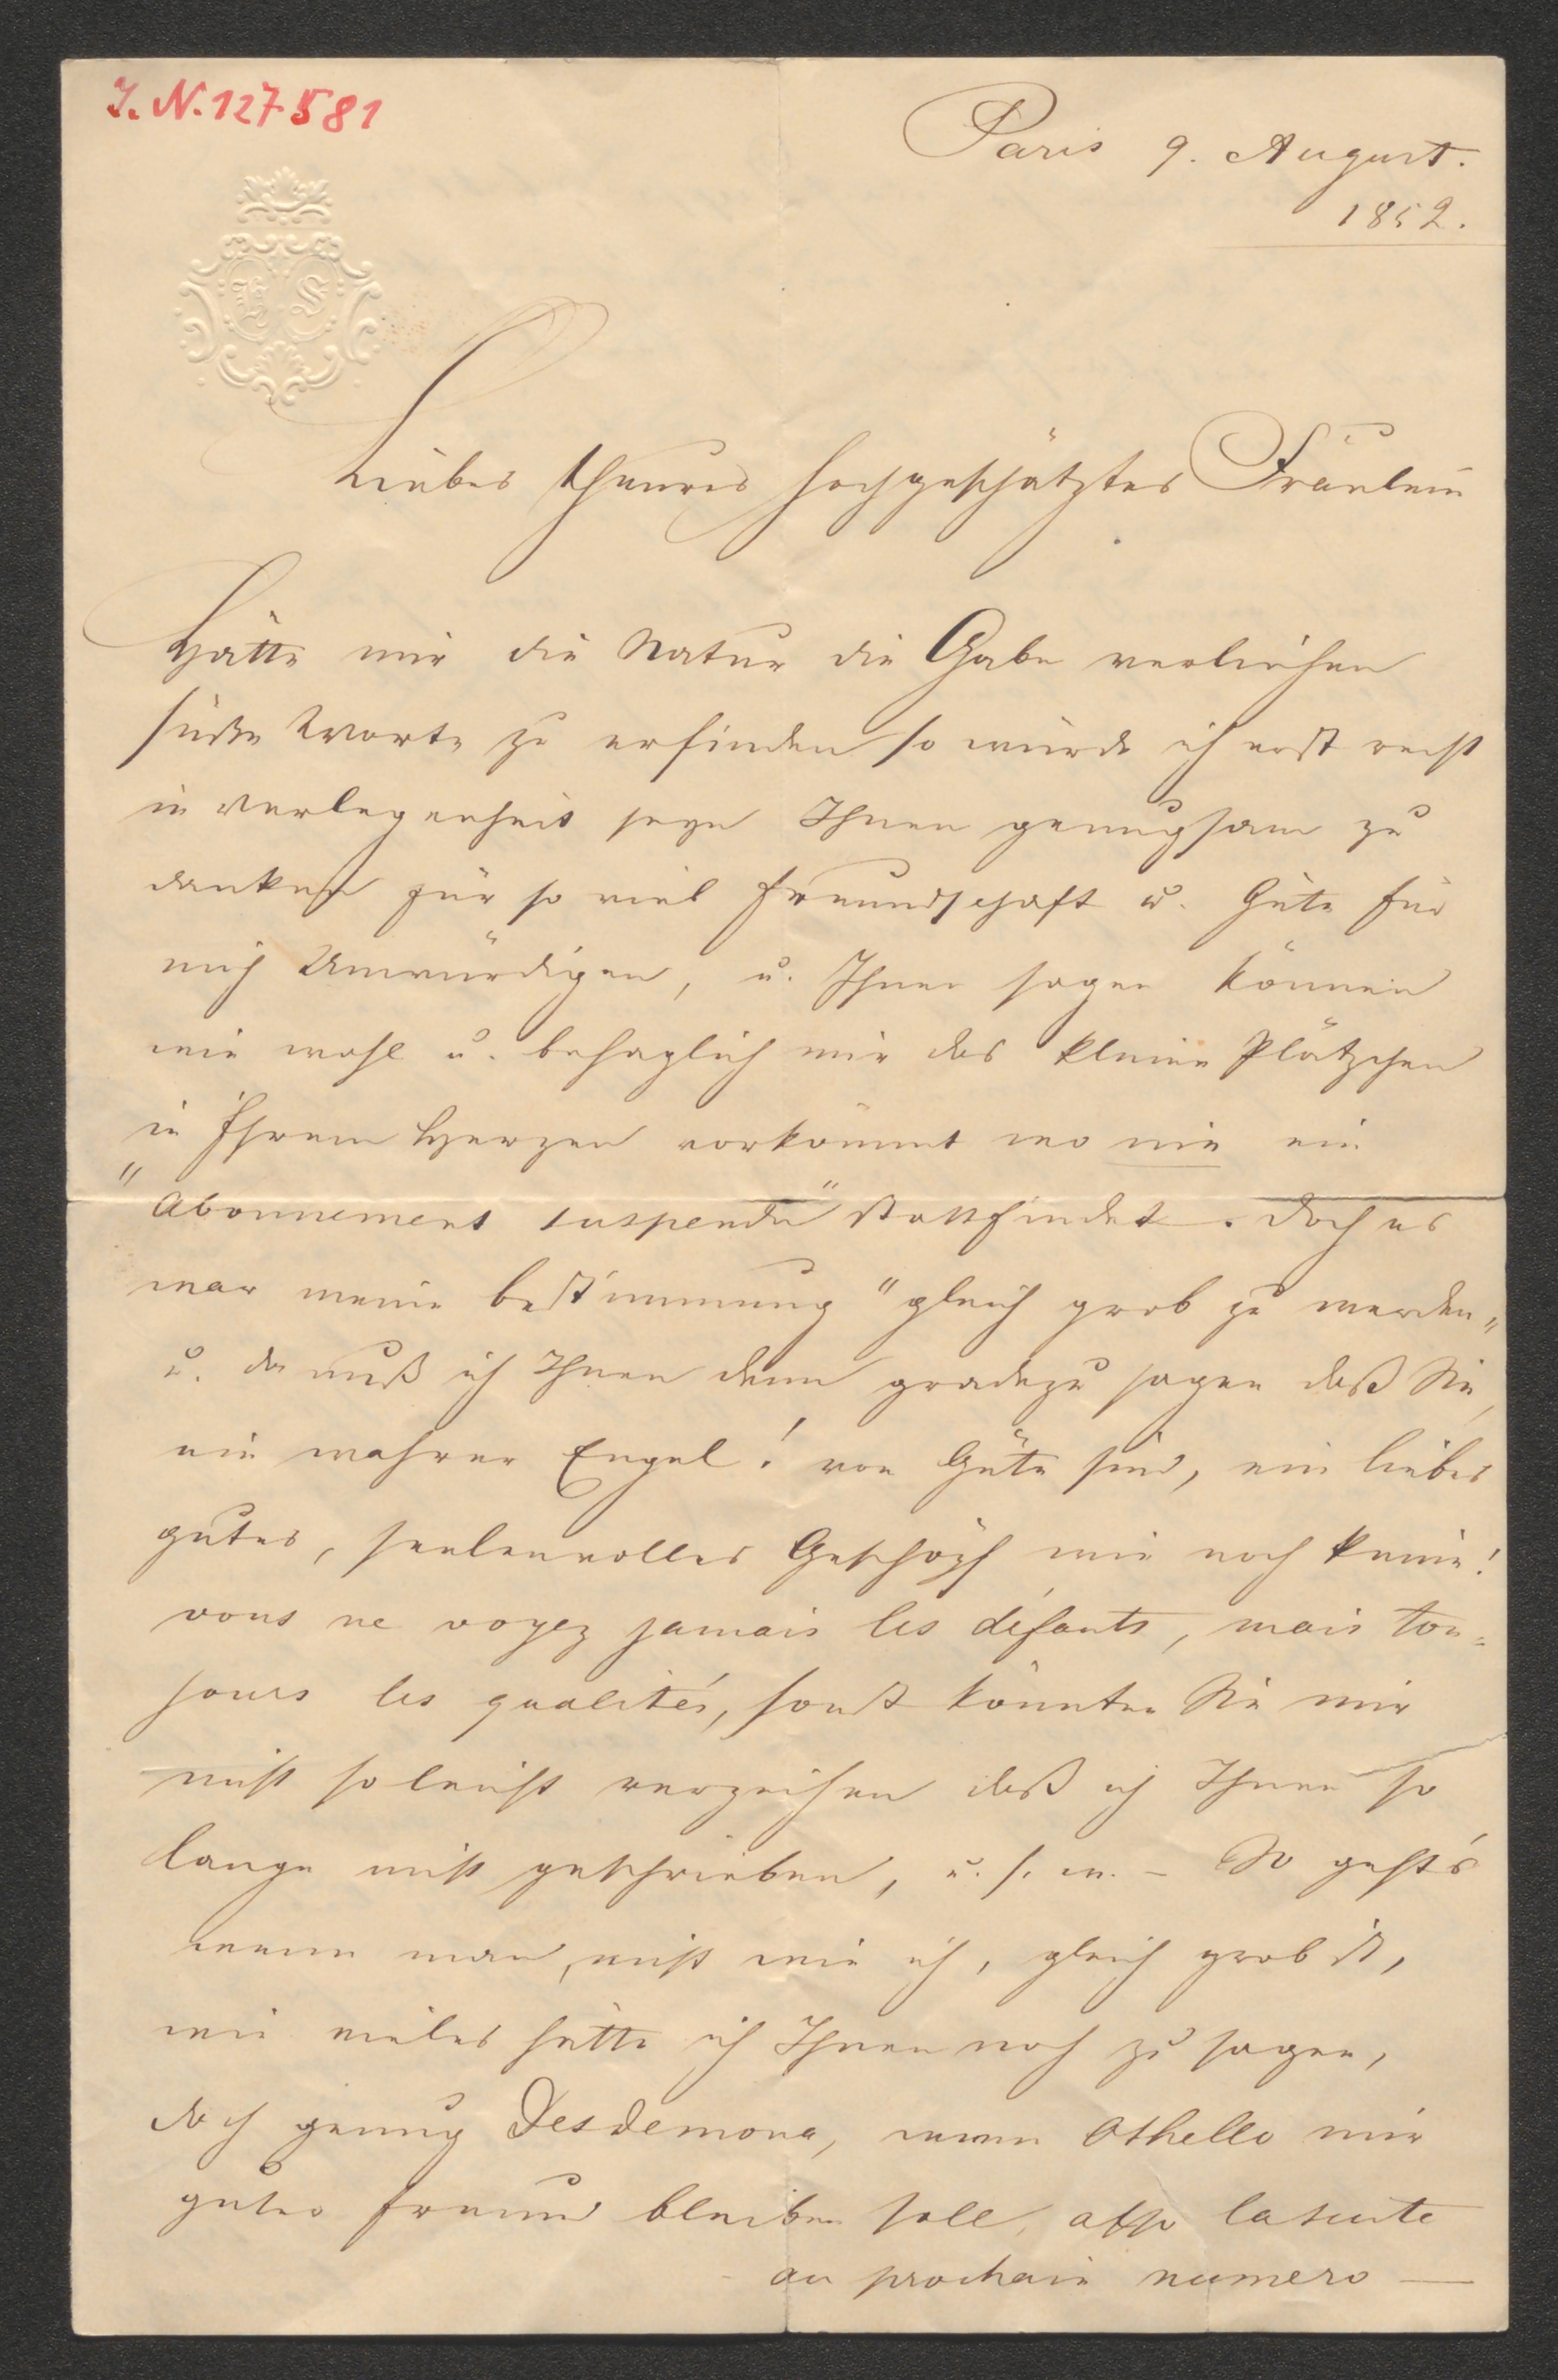 I. N. 127581
Paris 9. August.
1852.
Liebes theures hochgeschätztes Fräulein
Hätte mir die Natur die Gabe verliehen
süße Worte zu erfinden so würde ich erst recht
in Verlegenheit seyn Ihnen genugsam zu
danken für so viel Freundschaft u. Güte für
mich Unwürdigen, u. Ihnen sagen können
wie wohl u. behaglich mir das kleine Plätzchen
in Ihrem Herzen vorkömmt wo nie ein
"Abonnement suspendu" stattfindet. Doch es
war meine Bestimmung "gleich grob zu werden"
u. da muß ich Ihnen denn gradezu sagen daß Sie,
ein wahrer Engel! von Güte sind, ein liebes
gutes, seelenvolles Geschöpf wie noch keine!
vous ne voyez jamais les défauts, mais tou=
jours les qualités, sonst könnten Sie mir
nicht so leicht verzeihen daß ich Ihnen so
lange nicht geschrieben, u. s. w. – So geht's
wenn man, nicht wie ich, gleich grob ist,
wie vieles hätte ich Ihnen noch zu sagen,
doch genug Desdemona, wenn Othello mir
guter Freund bleiben soll, also la suite
au prochain numero —